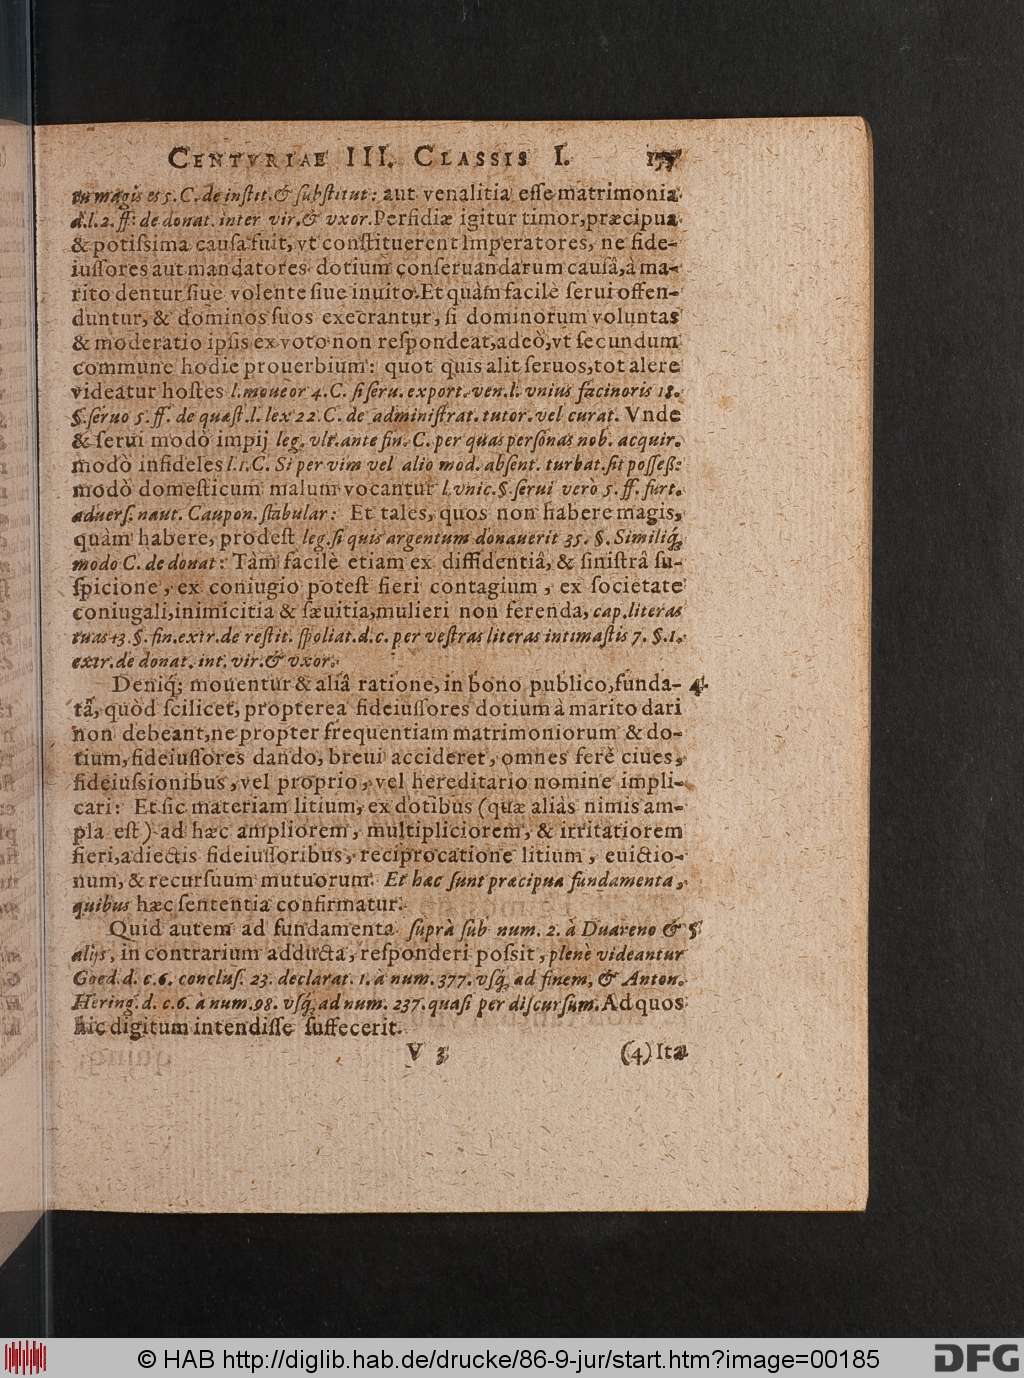 CENTVRIAE III. CLASSIS I. 177
tu magis es 5. C. de inſtit. & ſubſtitut: aut venalitia eſſe matrimonia
d.l.2. ff: de donat. inter vir. & vxor. Perfidiæ igitur timor, præcipua
& potiſsima cauſa fuit, vt conſtituerent Imperatores, ne fide-
iuſſores aut mandatores dotium conſeruandarum cauſâ, à ma-
rito dentur ſiue volente ſiue inuito. Et quàm facilè ſerui offen-
duntur, & dominos ſuos execrantur, ſi dominorum voluntas
& moderatio ipſis ex voto non reſpondeat, adeò, vt ſecundum
commune hodie prouerbium: quot quis alit ſeruos, tot alere
videatur hoſtes l. moueor 4. C. ſi ſeru. export. ven. l. vnius facinoris 18.
§. ſeruo 5. ff. de quæſt. l. lex 22. C. de adminiſtrat. tutor. vel curat. Vnde
& ſerui modò impij leg. vlt. ante fin. C. per quas perſonas nob. acquir.
modò infideles l. 1. C. Si per vim vel alio mod. abſent. turbat. ſit poſſeſs:
modò domeſticum malum vocantur l. vnic. §. ſerui verò 5. ff. furt.
aduerſ. naut. Caupon. ſtabular: Et tales, quos non habere magis,
quàm habere, prodeſt leg. ſi quis argentum donauerit 35. §. Similiq́;
modo C. de donat: Tàm facilè etiam ex diffidentiâ, & ſiniſtrâ ſu-
ſpicione, ex coniugio poteſt fieri contagium, ex ſocietate
coniugali, inimicitia & ſæuitia, mulieri non ferenda, cap. literas
tuas 13. §. fin. extr. de reſtit. ſpoliat. d. c. per veſtras literas intimaſtis 7. §. 1.
extr. de donat. int. vir. & vxor.
Deniq́; mouentur & aliâ ratione, in bono publico, funda- 4.
tâ, quòd ſcilicet, propterea fideiuſſores dotium à marito dari
non debeant, ne propter frequentiam matrimoniorum & do-
tium, fideiuſſores dando, breui accideret, omnes ferè ciues,
fideiuſsionibus, vel proprio, vel hereditario nomine impli-
cari: Et ſic materiam litium, ex dotibus (quæ aliàs nimis am-
pla eſt) ad hæc ampliorem, multipliciorem, & irritatiorem
fieri, adiectis fideiuſſoribus, reciprocatione litium, euictio-
num, & recurſuum mutuorum. Et hæc ſunt præcipua fundamenta,
quibus hæc ſententia confirmatur.
Quid autem ad fundamenta ſuprà ſub num. 2. à Duareno & 5.
alijs, in contrarium adducta, reſponderi poſsit, plenè videantur
Goed. d. c. 6. concluſ. 23. declarat. 1. à num. 377. vſq́; ad finem, & Anton.
Hering. d. c. 6. à num. 98. vſq́; ad num. 237. quaſi per diſcurſum. Ad quos
hic digitum intendiſſe ſuffecerit.
V 3 (4) Ita
© HAB http://diglib.hab.de/drucke/86-9-jur/start.htm?image=00185 DFG